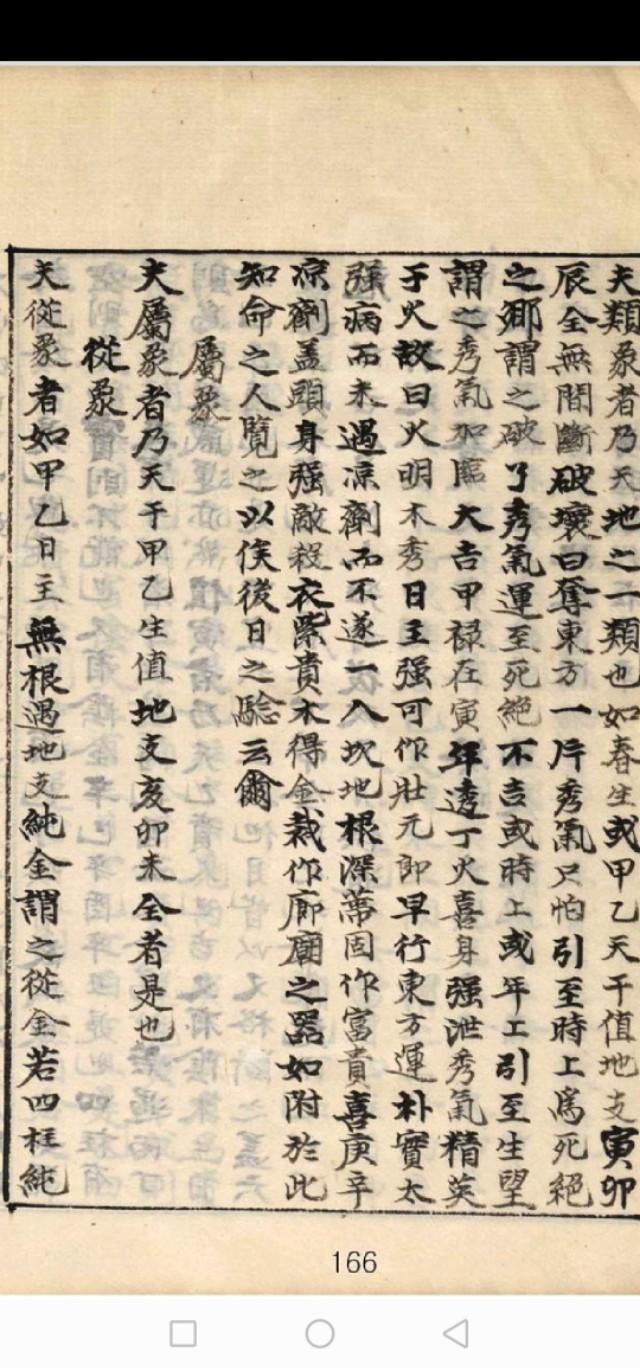 夫類象者乃天地之一類也如春生或甲乙天干值地支寅卯
辰全無間斷破壞曰奪東方一片秀氣只怕引至時上為死絕
之鄉謂之破了秀氣運至死絕不吉或時上或年上引至生望
謂之秀氣加臨大吉甲祿在寅年透丁火喜身强泄秀氣精英
于火故曰火明木秀日主强可作壯元郎早行東方運朴實太
强病而未遇凉劑而不遂一入坎地根深蒂固作富貴喜庚辛
凉劑盖頭身强敵殺衣紫貴木得金裁作廊廟之器如附於此
知命之人覽之以俟後日之驗云爾
屬象
夫屬象者乃天干甲乙生值地支亥卯未全者是也
從象
夫從象者如甲乙日主無根遇地支純金謂之從金若四柱純
166